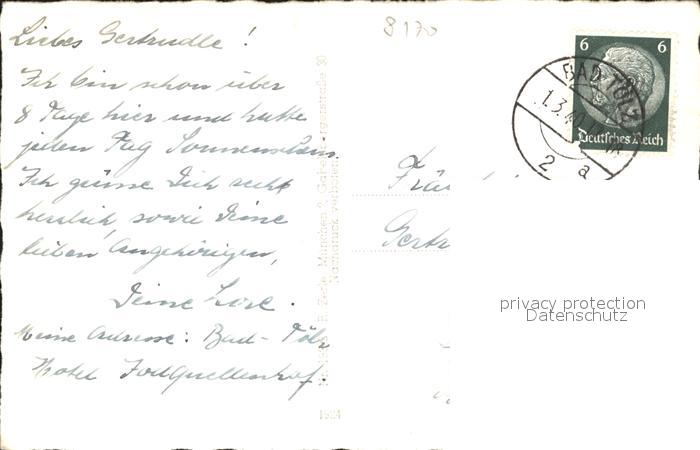 8170
Liebes Gertrudle!
Ich bin schon über
8 Tage hier und hatte
jeden Tag Sonnenschein.
Ich grüsse Dich recht
herzlich, sowie Deine
lieben Angehörigen,
Deine Lore.
Meine Adresse: Bad-Tölz
Hotel Jodquellenhof.
6 6
Deutsches Reich
BAD TÖLZ
1.3.40
2 a
Fräu
Gertr
München 2
Nachdruck verboten
1524
privacy protection
Datenschutz